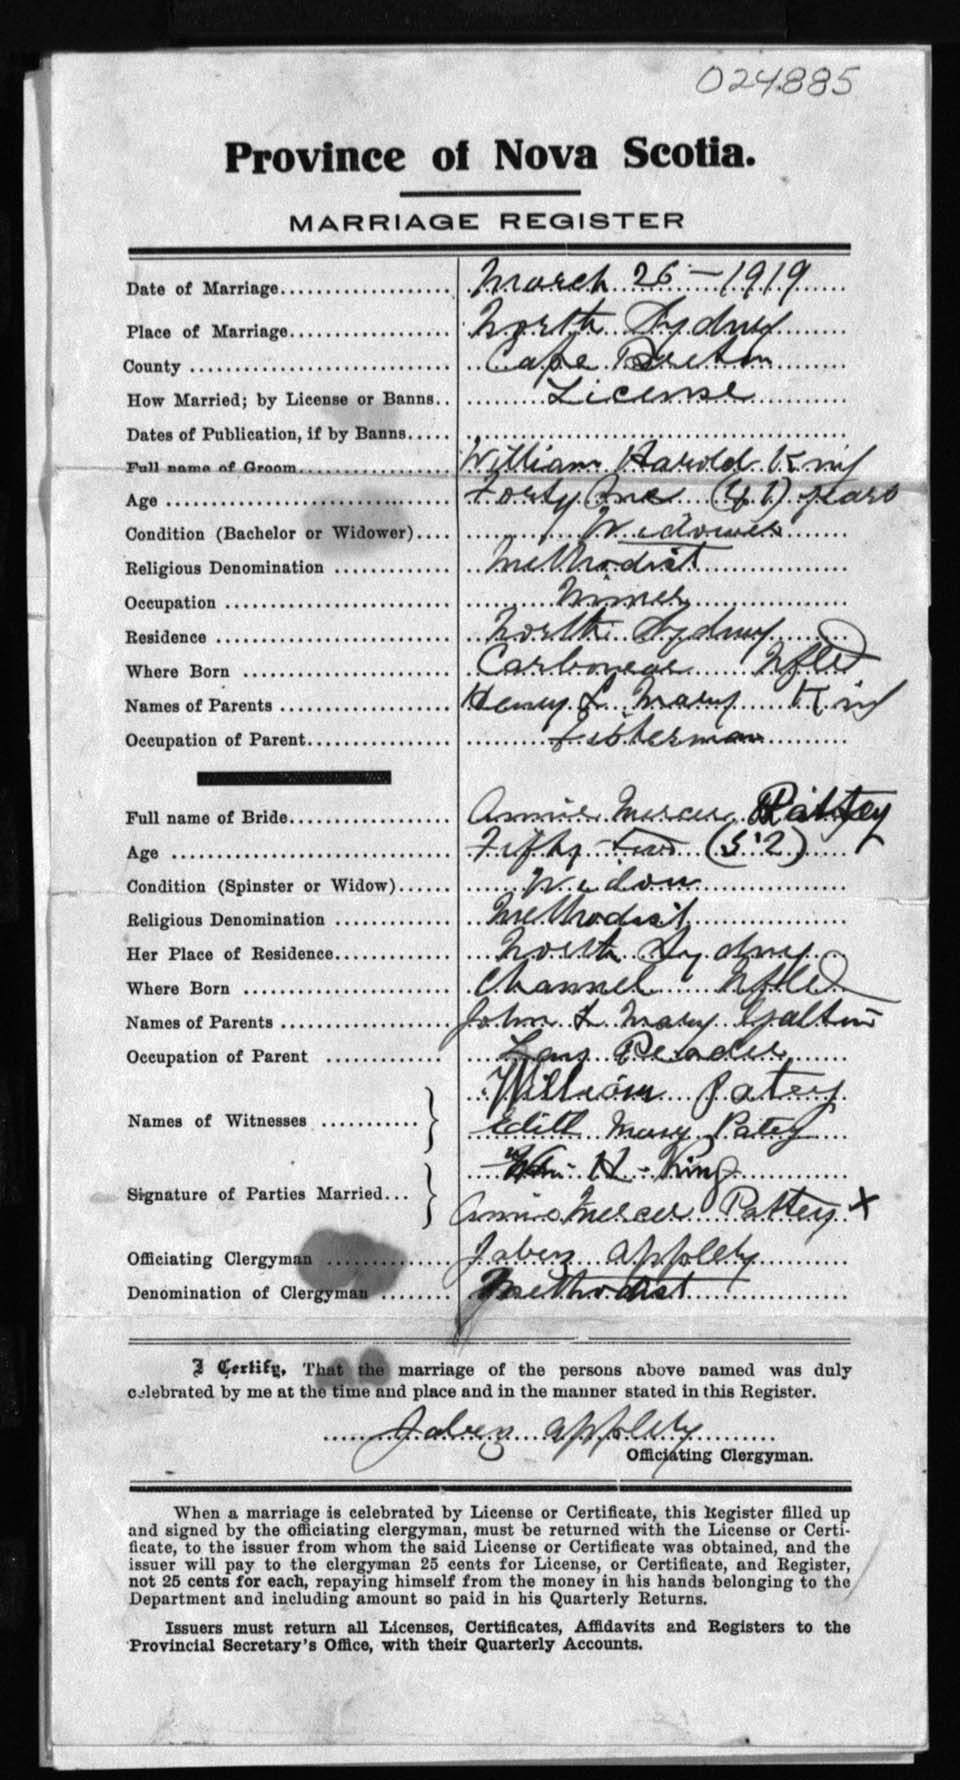 024885
Province of Nova Scotia.
MARRIAGE REGISTER
Date of Marriage.................... March 26 - 1919
Place of Marriage................... North Sydney
County .............................. Cape Breton
How Married; by License or Banns.. License
Dates of Publication, if by Banns.....
Full name of Groom.................. William Harold King
Age ................................. Forty One (41) years
Condition (Bachelor or Widower).... Widower
Religious Denomination ............. Methodist
Occupation .......................... Miner
Residence ........................... North Sydney
Where Born ......................... Carbonear Nfld
Names of Parents ................... Henry & Mary King
Occupation of Parent................ Fisherman
Full name of Bride.................. Annie Mercer Pattey
Age ................................. Fifty Two (52)
Condition (Spinster or Widow)...... Widow
Religious Denomination ............. Methodist
Her Place of Residence.............. North Sydney
Where Born ......................... Channel Nfld
Names of Parents ................... John & Mary
Occupation of Parent ...............
Names of Witnesses ........... William Patey
Edith Mary Patey
Signature of Parties Married... Wm. H - King
Annie Mercer Pattey X
Officiating Clergyman .............. Jabez Appleby
Denomination of Clergyman......... Methodist
I Certify, That the marriage of the persons above named was duly
celebrated by me at the time and place and in the manner stated in this Register.
Jabez Appleby
Officiating Clergyman.
When a marriage is celebrated by License or Certificate, this Register filled up
and signed by the officiating clergyman, must be returned with the License or Certi-
ficate, to the issuer from whom the said License or Certificate was obtained, and the
issuer will pay to the clergyman 25 cents for License, or Certificate, and Register,
not 25 cents for each, repaying himself from the money in his hands belonging to the
Department and including amount so paid in his Quarterly Returns.
Issuers must return all Licenses, Certificates, Affidavits and Registers to the
Provincial Secretary's Office, with their Quarterly Accounts.